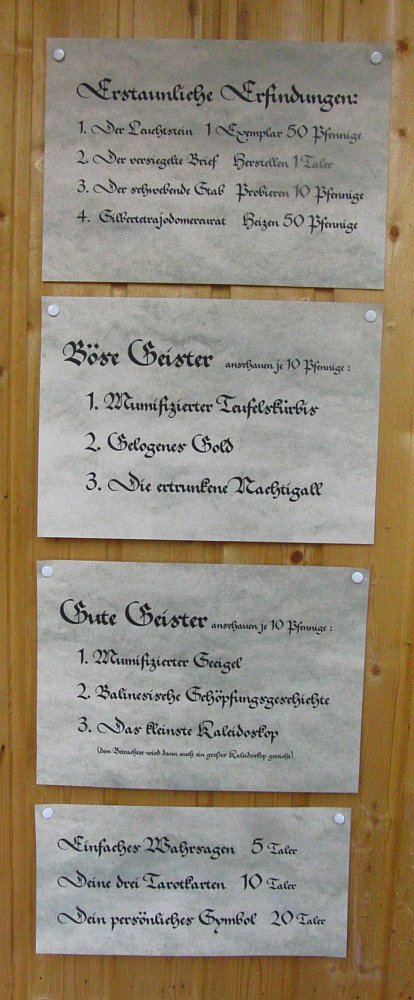 Erstaunliche Erfindungen:
1. Der Leuchtstein 1 Exemplar 50 Pfennige
2. Der versiegelte Brief Herstellen 1 Taler
3. Der schwebende Stab Probieren 10 Pfennige
4. Silbertetrajodomercurat Heizen 50 Pfennige
Böse Geister anschauen je 10 Pfennige :
1. Mumifizierter Teufelskürbis
2. Gelogenes Gold
3. Die ertrunkene Nachtigall
Gute Geister anschauen je 10 Pfennige :
1. Mumifizierter Seeigel
2. Balinesische Schöpfungsgeschichte
3. Das kleinste Kaleidoskop
(dem Betrachter wird dann auch ein großes Kaleidoskop gereicht)
Einfaches Wahrsagen 5 Taler
Deine drei Tarotkarten 10 Taler
Dein persönliches Symbol 20 Taler